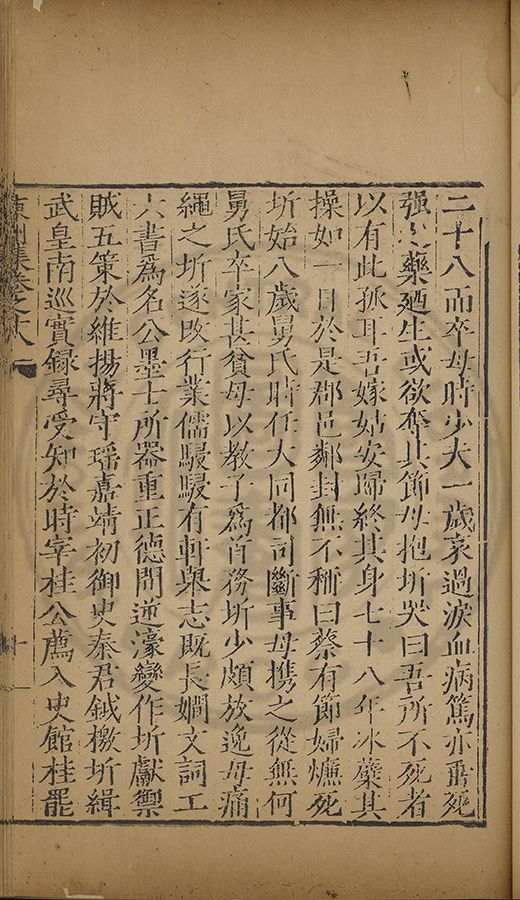 二十八而卒母時少大一歲哀過淚血病篤亦重死
强之藥廼生或欲奪其節母抱圻哭曰吾所不死者
以有此孤耳吾嫁姑安歸終其身七十八年冰蘗其
操如一日於是郡邑鄰封無不稱曰蔡有節婦爊死
圻始八歲舅氏時任大同都司斷事母携之從無何
舅氏卒家甚貧母以教子爲首務圻少頗放逸母痛
繩之圻遂改行業儒駸駸有軒舉志旣長嫺文詞工
六書爲名公墨士所器重正德間逆濠變作圻獻禦
賊五策於維揚蔣守瑶嘉靖初御史秦君鉞檄圻緝
武皇南巡實録尋受知於時宰桂公薦入史館桂罷
集卷之 十